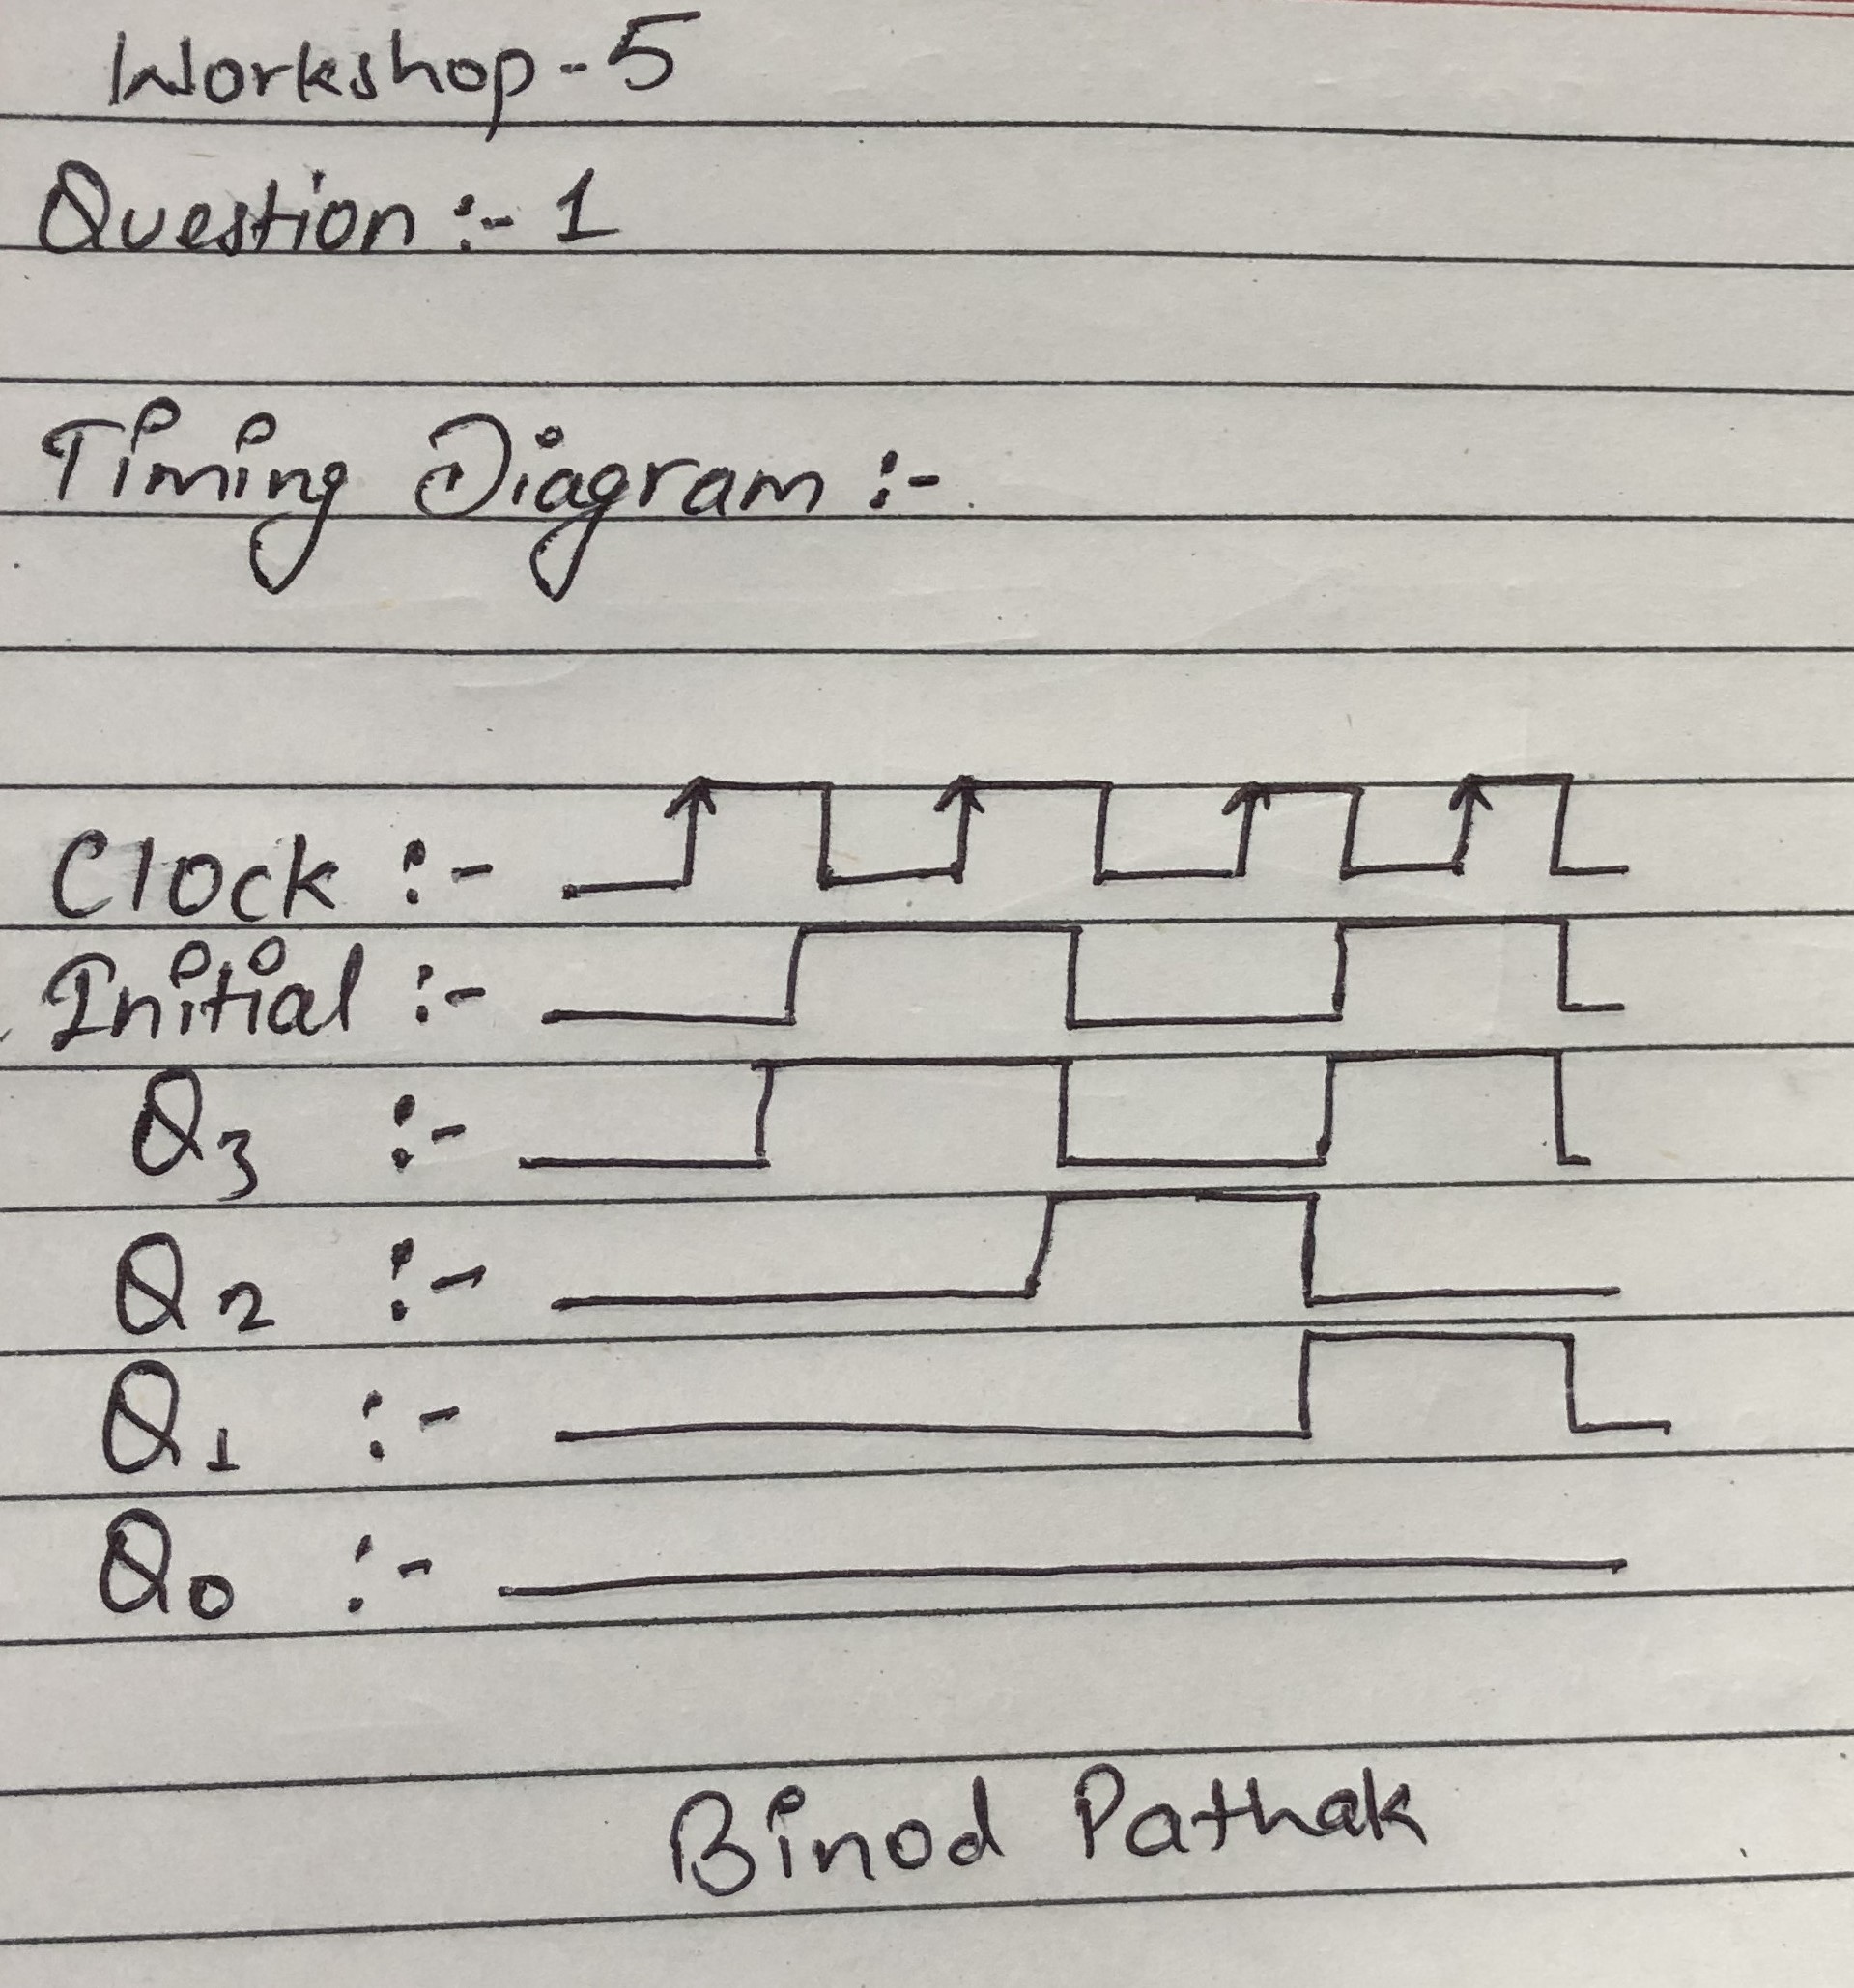 Workshop-5
Question :- 1
Timing Diagram :-
Clock :-
Initial :-
Q3 :-
Q2 :-
Q1 :-
Q0 :-
Binod Pathak